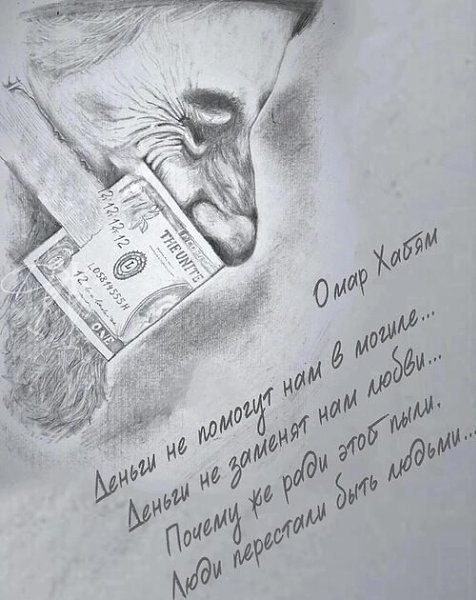 THE UNITE
12
ONE
Омар Хабям
Деньги не помогут нам в могиле...
Деньги не заменят нам любви...
Почему же ради этоб пыли,
Люди перестали быть людьми...